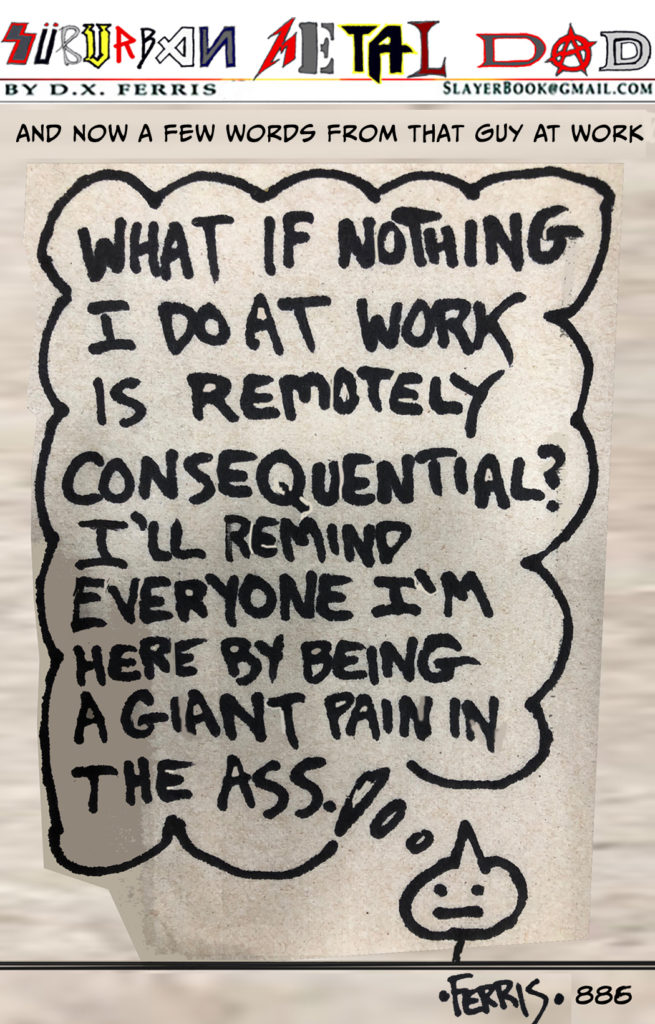 SÜBURBAN METAL DAD
BY D.X. FERRIS SLAYERBOOK@GMAIL.COM
AND NOW A FEW WORDS FROM THAT GUY AT WORK
WHAT IF NOTHING
I DO AT WORK
IS REMOTELY
CONSEQUENTIAL?
I'LL REMIND
EVERYONE I'M
HERE BY BEING
A GIANT PAIN IN
THE ASS.
·FERRIS· 886